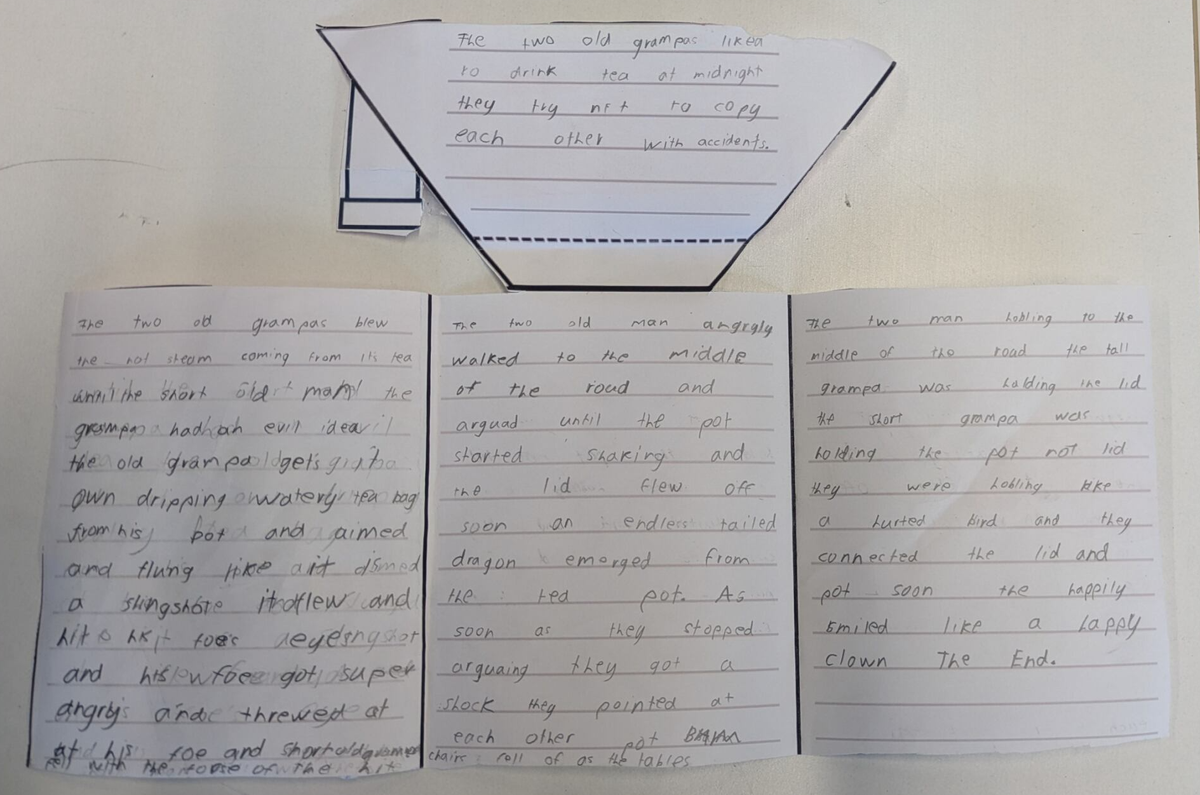 The two old grampas likea
to drink tea at midnight
they try nft to copy
each other with accidents.
The two old grampas blew
the not steam coming from its tea
until the short old man the
grampa had an evil idea
the old grampa gets
own dripping watery tea bag
from his pot and aimed
and flung like a
a slingshote it flew and
hit his foe's eye
and his foe got super
angry and threwed at
at his foe and short old grampa
fell with the force of the hit
The two old man angrgly
walked to the middle
of the road and
arguad until the pot
started shaking and
the lid flew off
soon an endless tailed
dragon emerged from
the tea pot. As
soon as they stopped
arguaing they got a
shock they pointed at
each other pot BAAM
chairs roll of as the tables
The two man hobling to the
middle of the road the tall
grampa was holding the lid
the short grampa was
holding the pot not lid
they were hobling like
a hurted bird and they
connected the lid and
pot soon the happily
smiled like a happy
clown The End.